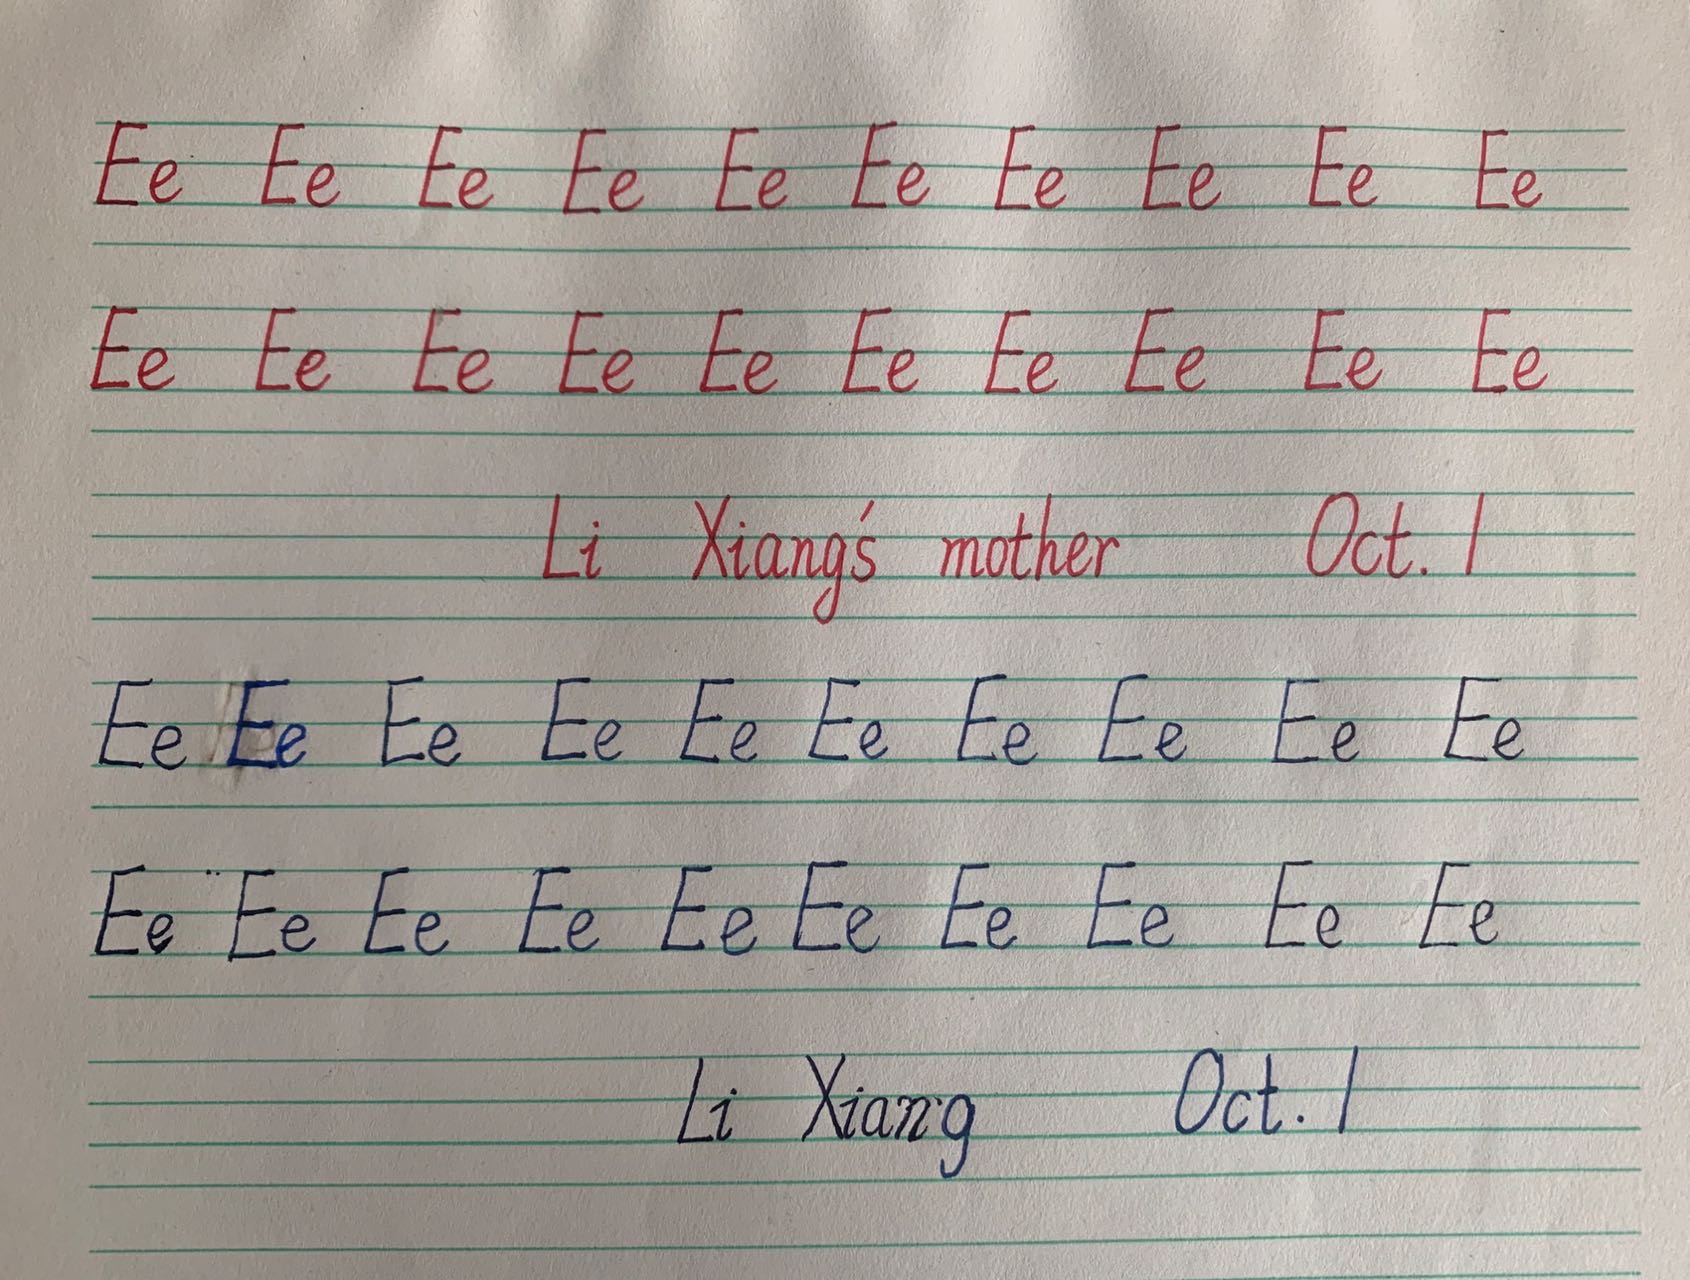 Ee Ee Ee Ee Ee Ee Ee Ee Ee Ee
Ee Ee Ee Ee Ee Ee Ee Ee Ee Ee
Li Xiang's mother Oct. 1
Ee Ee Ee Ee Ee Ee Ee Ee Ee Ee
Ee Ee Ee Ee Ee Ee Ee Ee Ee Ee
Li Xiang Oct. 1